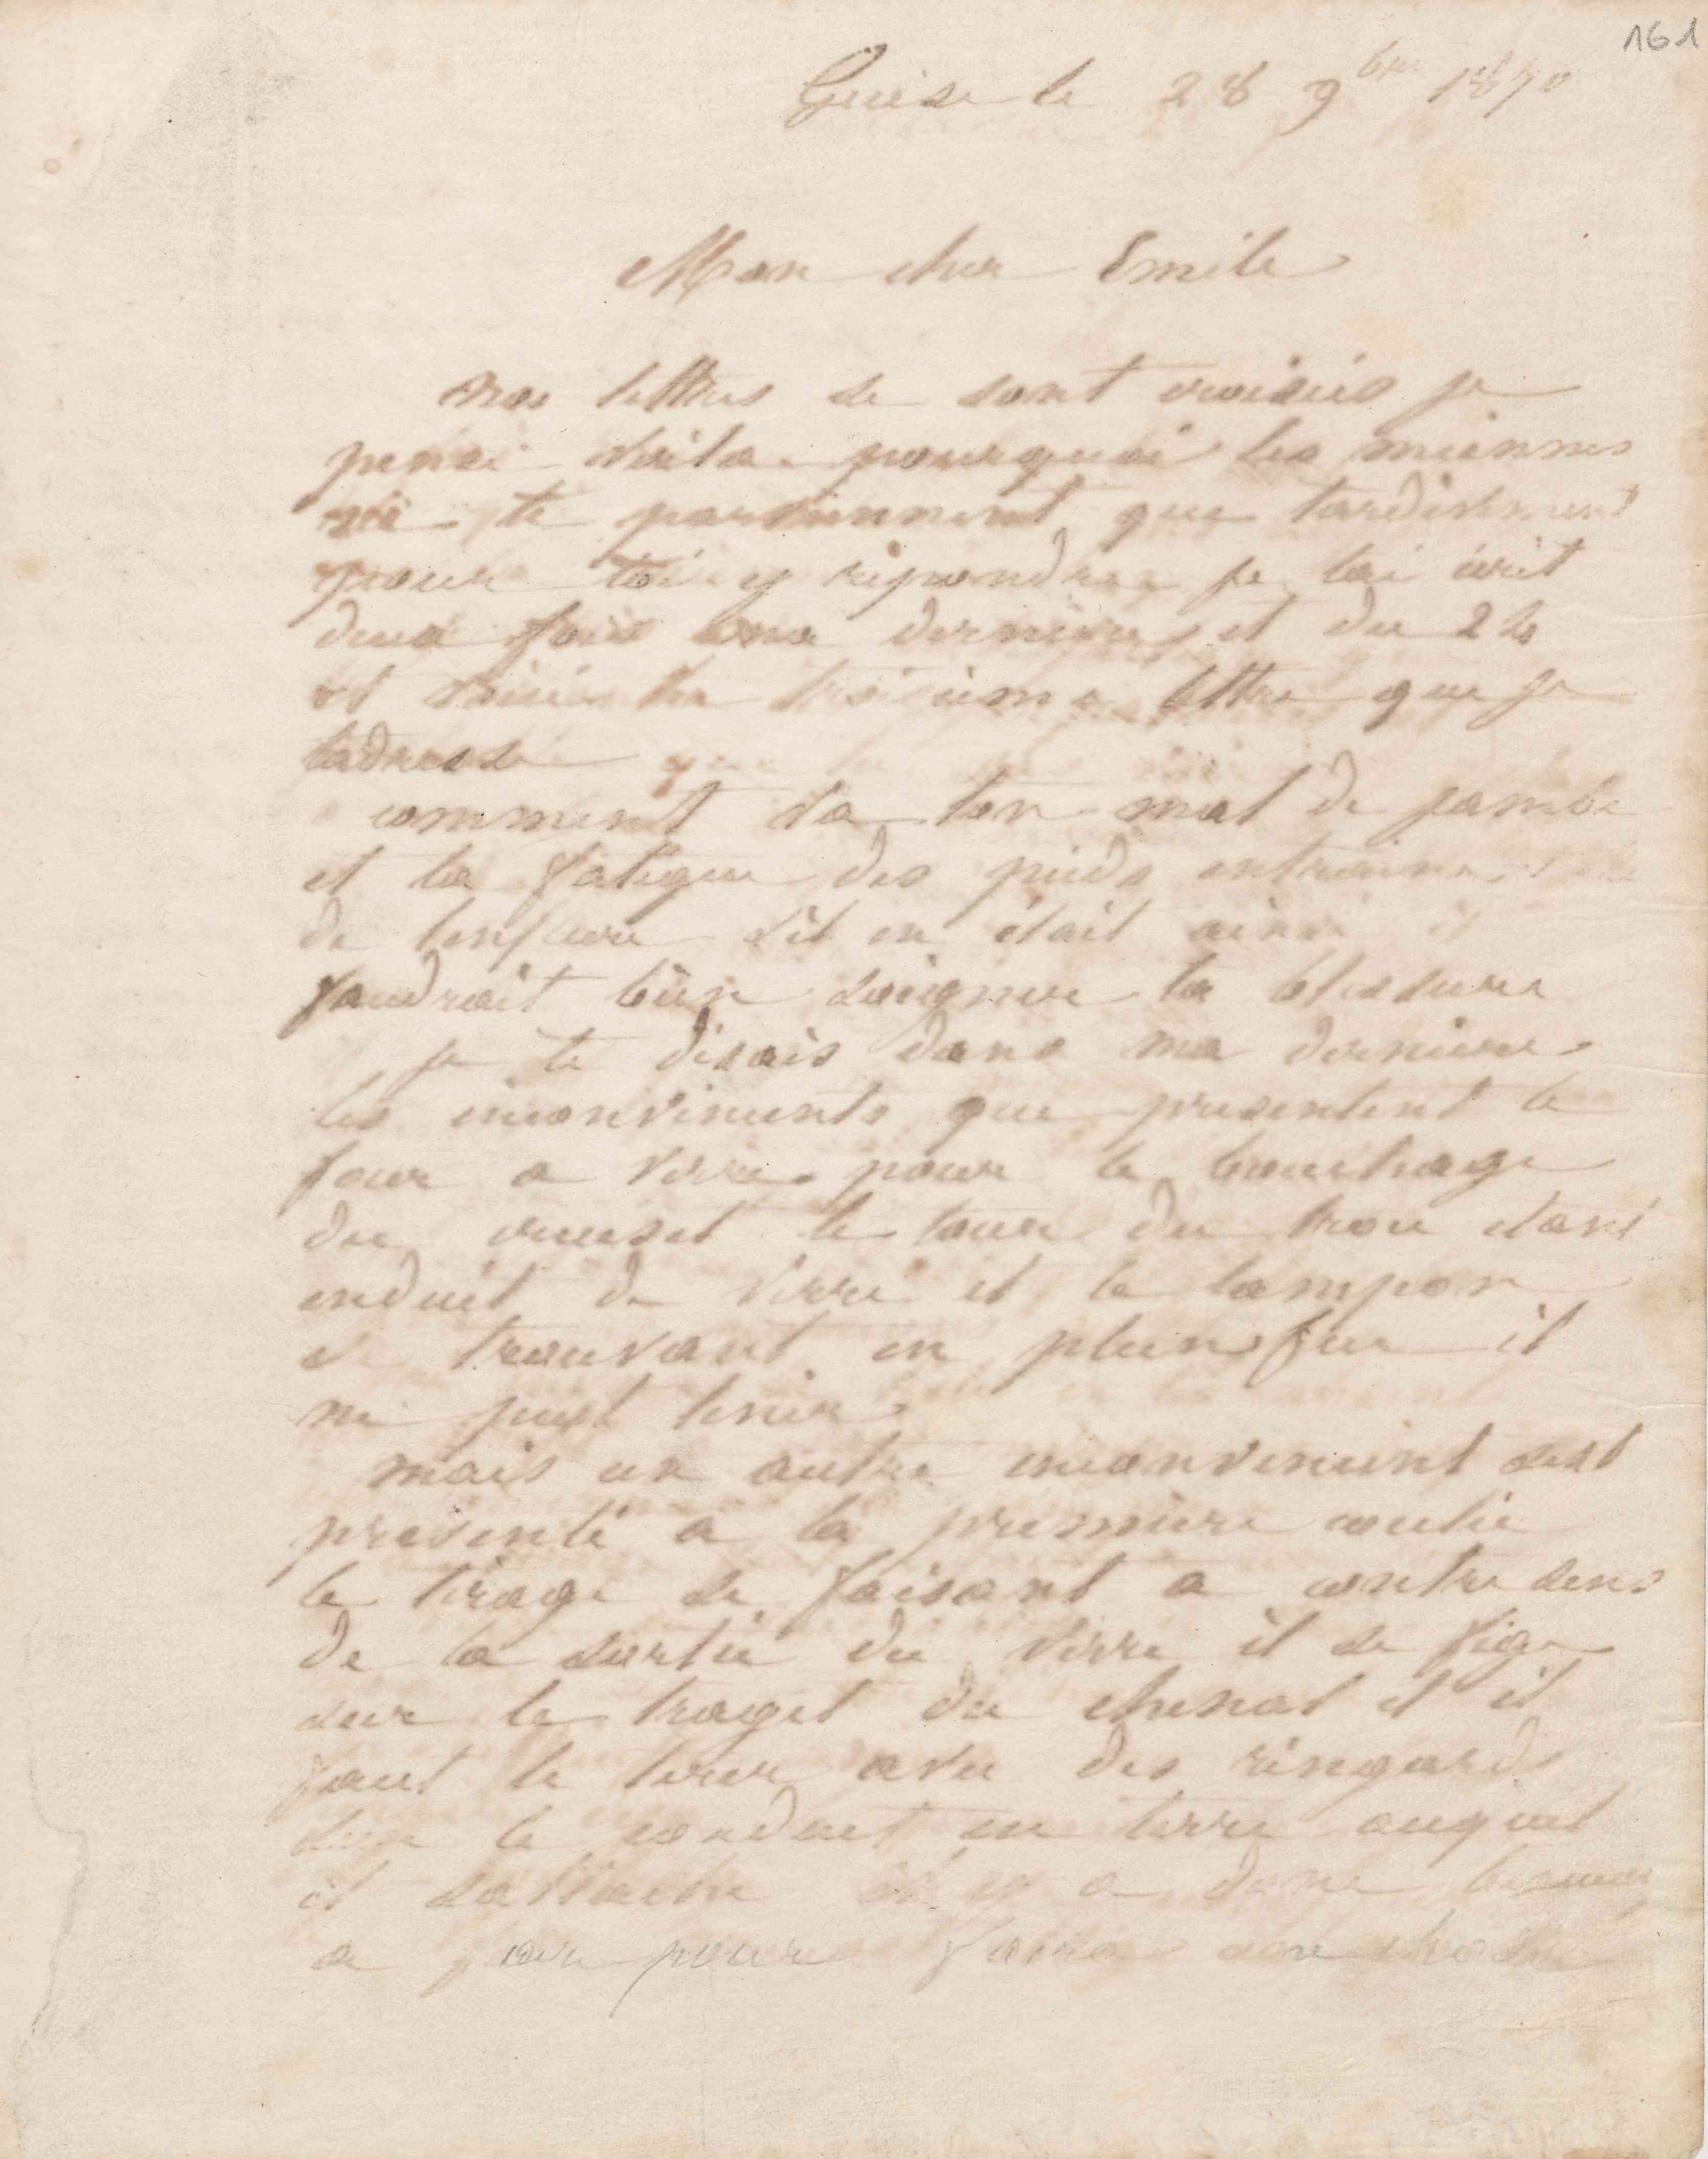 161
Guise le 28 9bre 1870
Mon cher Emile
nos lettres se sont croisées je
pense voila pourquoi les miennes
ne te parviennent que tardivement
pour toi y répondre je tai écrit
deux fois ma derniere et du 24
et voici la troisieme lettre que je
tadresse
comment va ton mal de jambe
et la fatigue des pieds
de lenflure s'il en était ainsi il
faudrait bien soigner ta blessure
je te disais dans ma derniere
les inconvenients que presentent le
four a verre pour le bouchage
du creuset le tour du trou etant
enduit de verre et le tampon
se trouvant en plein feu il
ne peut tenir
mais un autre inconvenient sest
presenté a la premiere coulée
le tirage se faisant a contre sens
de la sortie du verre il se fige
sur le traget du chenal et il
faut le tirer avec des ringards
le conduit en terre auquel
il sattache il y a donc beaucoup
a pour faire une chose